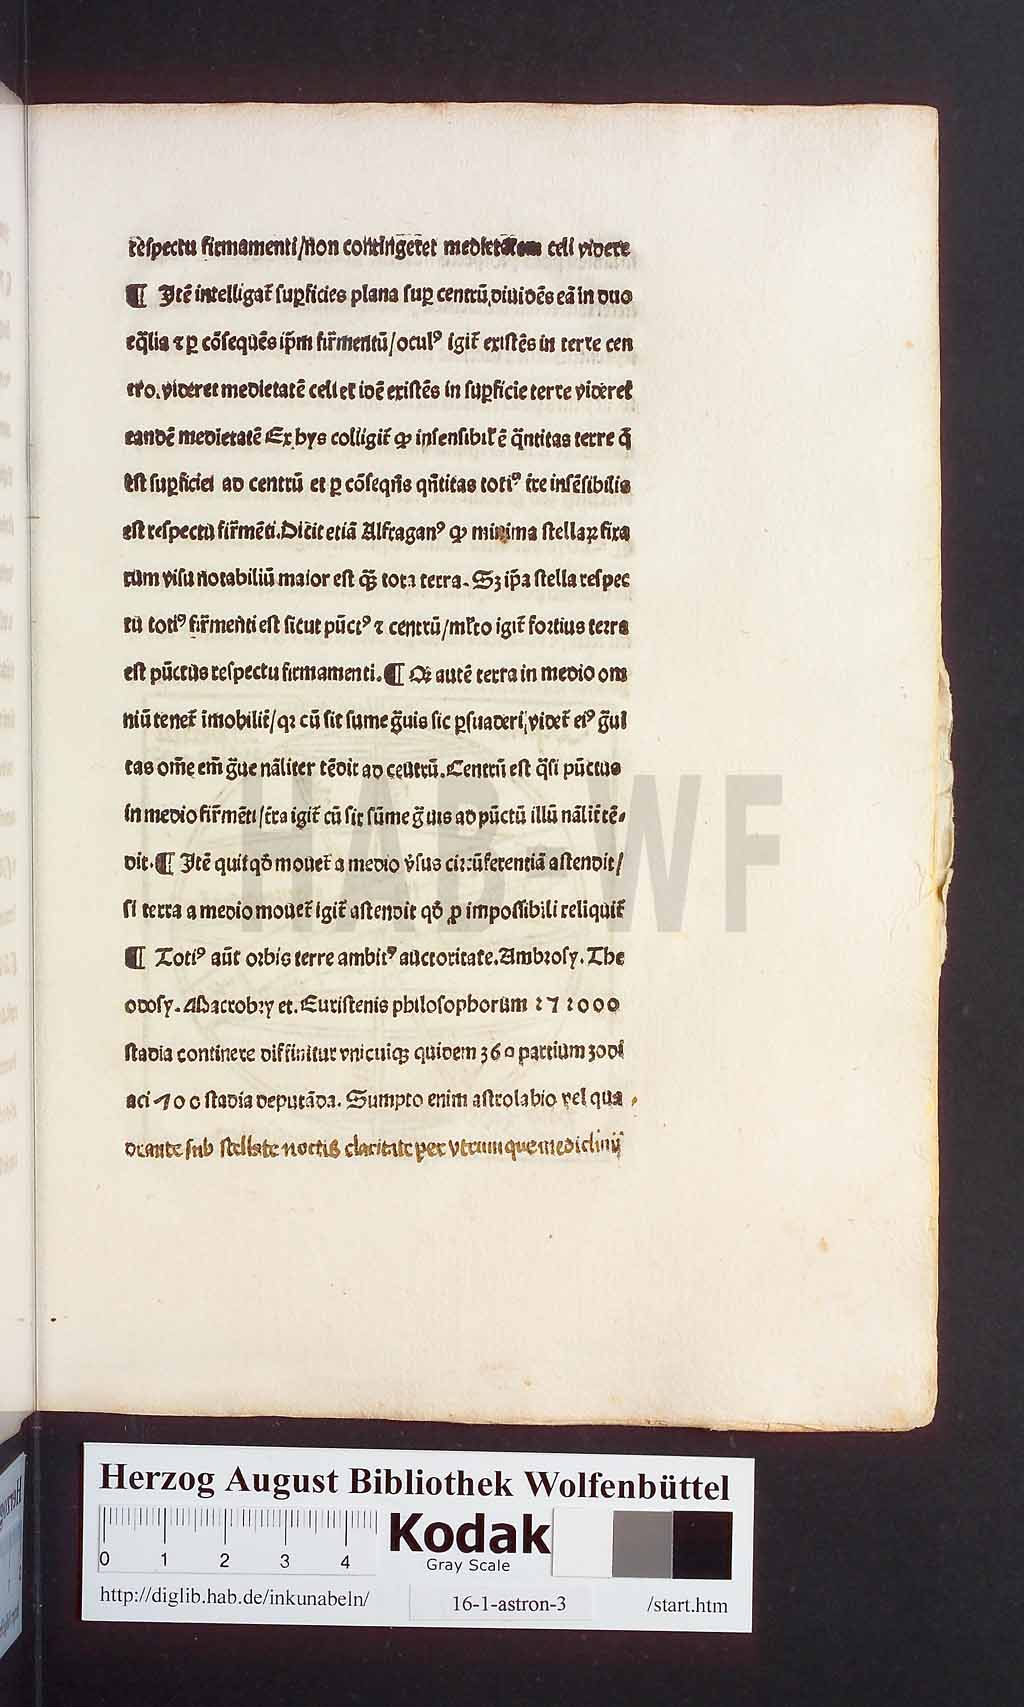 respectu firmamenti/non contingeret medietatem celi videre
¶ Itē intelligat̄ suꝑficies plana suꝑ centrū,diuidēs eā in duo
eq̄lia ⁊ ꝑ cōsequēs ip̄m fir̄mentū/oculꝰ igit̄ existēs in terre cen
tro.videret medietatē celi et idē existēs in suꝑficie terre videret
eandē medietatē Ex hys colligit̄ ꝙ insensibil̄ ē q̄ntitas terre q̄
est suꝑficiei ad centrū et ꝑ cōseqn̄s qn̄titas totiꝰ t̄re insēsibilis
est respectu fir̄mēti.Dicit etiā Alfraganꝰ ꝙ minima stellaꝝ fixa
rum visu notabiliū maior est qꝫ̄ tota terra. Sꝫ ip̄a stella respec
tu totiꝰ fir̄menti est sicut pūctꝰ ⁊ centrū/ml̄to igit̄ fortius terra
est pūctus respectu firmamenti. ¶ Qꝛ autē terra in medio om
niū tenet̄ īmobilit̄/qꝛ cū sit sume ḡuis sic ꝑsuaderi videt̄ eiꝰ ḡui
tas om̄e em̄ ḡue nāliter tēdit ad centrū.Centrū est q̄si pūctus
in medio fir̄mēti/t̄ra igit̄ cū sit sūme ḡuis ad pūctū illū nālit̄ tē⸗
dit. ¶ Itē quitqd̄ mouet̄ a medio v̄sus circūferentiā astendit/
si terra a medio mouet̄ igit̄ astendit qd̄ ꝓ impossibili reliquit̄
¶ Totiꝰ aūt orbis terre ambitꝰ auctoritate.Ambrosy. The
odosy. Macrobry et. Euristenis philosophorum 272000
stadia continere diffinitur vnicuiqꝫ quidem 360 partium zodi
aci 700 stadia deputāda. Sumpto enim astrolabio vel qua
drante sub stellate noctis claritate per vtrumque mediclinij
HAB-WF
Herzog August Bibliothek Wolfenbüttel
0 1 2 3 4
Kodak
Gray Scale
http://diglib.hab.de/inkunabeln/ 16-1-astron-3 /start.htm